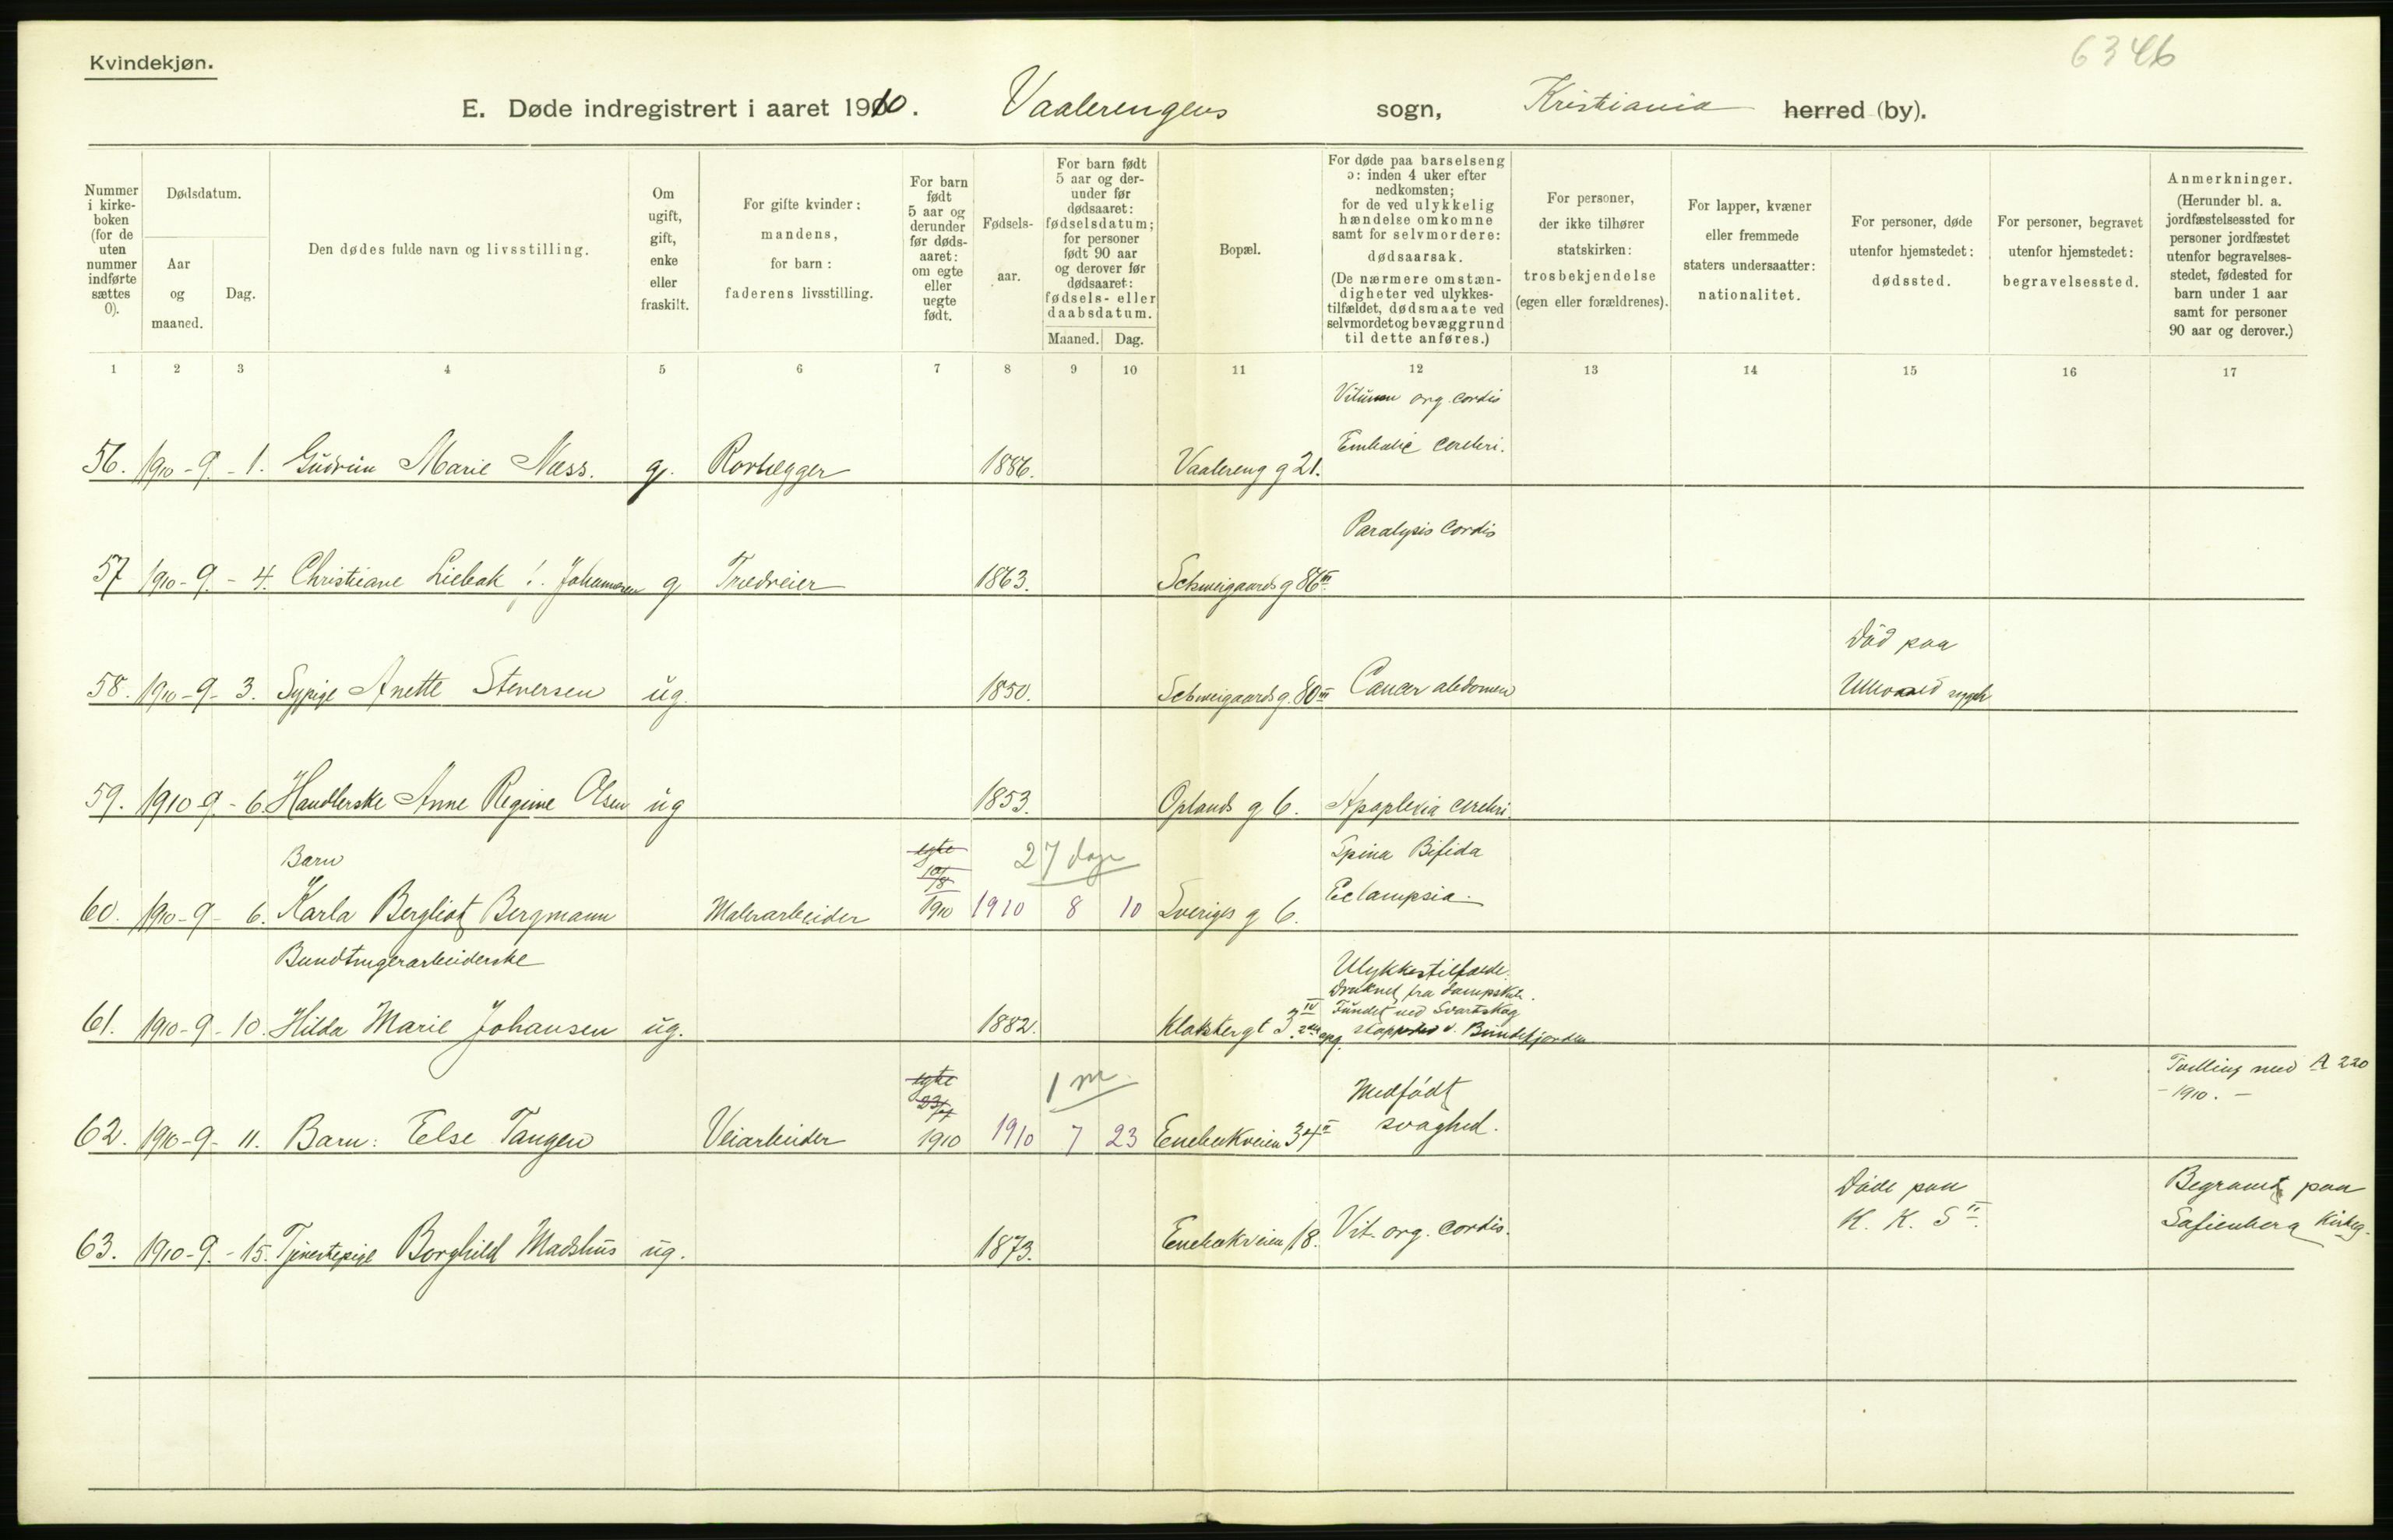 Kvindekjøn.
6346
E. Døde indregistrert i aaret 1910. Vaalerengens sogn, Kristiania herred (by).
Nummer i kirke-boken (for de uten nummer indførte sættes 0).
Dødsdatum.
Aar og maaned.
Dag.
Den dødes fulde navn og livsstilling.
Om ugift, gift, enke eller fraskilt.
For gifte kvinder: mandens, for barn: faderens livsstilling.
For barn født 5 aar og derunder før døds-aaret: om egte eller uegte født.
Fødsels-aar.
For barn født 5 aar og der-under før dødsaaret: fødselsdatum; for personer født 90 aar og derover før dødsaaret: fødsels- eller daabsdatum.
Maaned. Dag.
Bopæl.
For døde paa barselseng ɔ: inden 4 uker efter nedkomsten; for de ved ulykkelig hændelse omkomne samt for selvmordere: dødsaarsak. (De nærmere omstæn-digheter ved ulykkes-tilfældet, dødsmaate ved selvmordet og bevæggrund til dette anføres.)
For personer, der ikke tilhører statskirken: trosbekjendelse (egen eller forældrenes).
For lapper, kvæner eller fremmede staters undersaatter: nationalitet.
For personer, døde utenfor hjemstedet: dødssted.
For personer, begravet utenfor hjemstedet: begravelsessted.
Anmerkninger. (Herunder bl. a. jordfæstelsessted for personer jordfæstet utenfor begravelses-stedet, fødested for barn under 1 aar samt for personer 90 aar og derover.)
1 2 3 4 5 6 7 8 9 10 11 12 13 14 15 16 17
Vitium org. cordis
Embolie cerebri.
56. 1910-9.-1. Gudrun Marie Næss. g. Rørlægger 1886. Vaalereng g 21.
Paralysis Cordis
57 1910-9.-4. Christiane Liebak f. Johannesen g Trædreier 1863. Schweigaards g 86 III.
Död paa
58. 1910-9-3. Sypige Anette Steversen ug. 1850. Schweigaards g. 80 III Cancer abdomen Ullevaal sygeh
59. 1910-9.-6. Handlerske Anne Regine Olsen ug 1853. Oplands g 6. Apoplexia cerebri.
Barn egte 27 dage Spina Bifida
10/8
60. 1910-9-6. Karla Bergliot Bergmann Malerarbeider 1910 1910 8 10 Sveriges g 6. Eclampsia.
Bundtmagerarbeiderske Ulykkestilfælde.
Druknet fra dampskib.
Fundet ved Svartskog
61. 1910-9-10. Hilda Marie Johansen ug. 1882. Klakstergt 3 IV 2den opg. stoppested v. Bundefjorden
egte 1 m. Medfødt Tvilling med A 220
23/7 - 1910. -
62. 1910-9-11. Barn: Else Tangen Veiarbeider 1910 1910 7 23 Enebakveien 34 II svaghed.
Døde paa Begravet paa
K. K. S II. Sofienberg Kirkeg.
63. 1910-9.-15. Tjenestepige Borghild Madshus ug. 1873. Enebakveien 18. Vit. org. cordis.